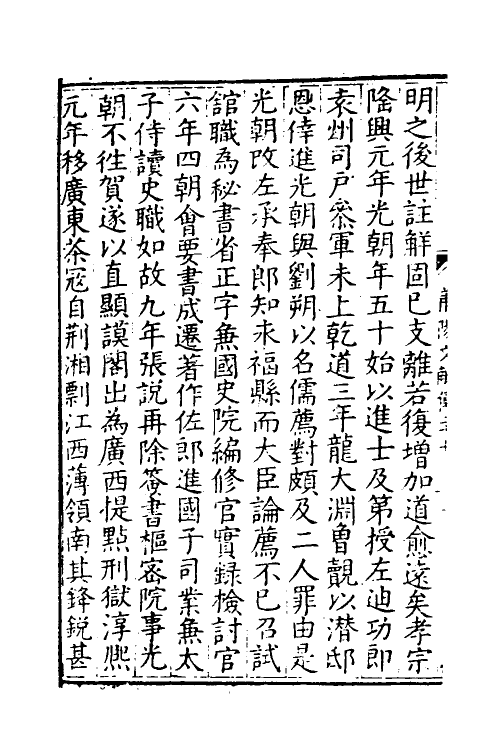 明之後世註解固已支離若復增加道愈遠矣孝宗
隆興元年光朝年五十始以進士及第授左迪功郎
袁州司戶叅軍未上乾道三年龍大淵曾覿以潜邸
恩倖進光朝與劉朔以名儒薦對頗及二人罪由是
光朝改左承奉郎知永福縣而大臣論薦不已召試
館職為秘書省正字兼國史院編修官實録檢討官
六年四朝會要書成遷著作佐郎進國子司業兼太
子侍讀史職如故九年張說再除簽書樞宻院事光
朝不徃賀遂以直顯謨閣出為廣西提㸃刑獄淳熈
元年移廣東茶冦自荆湘剽江西薄領南其鋒銳甚